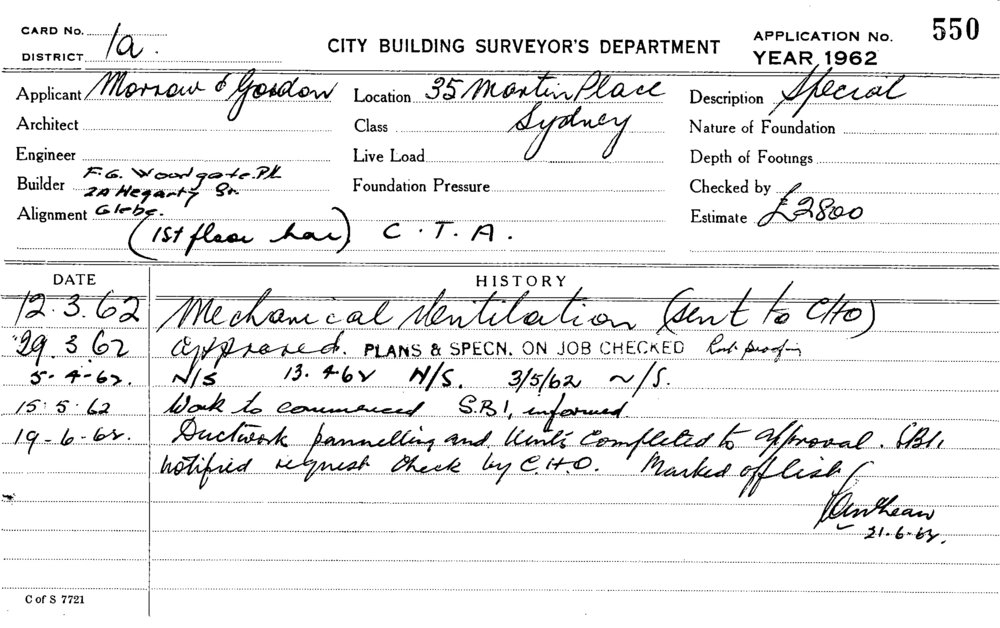 CARD No. 1a.
DISTRICT
CITY BUILDING SURVEYOR'S DEPARTMENT
APPLICATION No. 550
YEAR 1962
Applicant Morrow & Gordon Location 35 Martin Place Description Special
Architect Class Sydney Nature of Foundation
Engineer Live Load Depth of Footings
Builder F.G. Woodgate P/L Foundation Pressure Checked by
2A Hegarty St.
Alignment Glebe. Estimate £2800
(1st floor bar) C.T.A.
DATE HISTORY
12.3.62 Mechanical Ventilation (sent to CHO)
29.3.62 approved. PLANS & SPECN. ON JOB CHECKED Rat proofing
5-4-62. N/S 13.4.62 N/S. 3/5/62 N/S.
15.5.62 Work to commenced S.B.I. informed
19-6-62. Ductwork pannelling and Vents Completed to approval. SBI.
notified request check by C.H.O. Marked off list
21-6-62.
C of S 7721